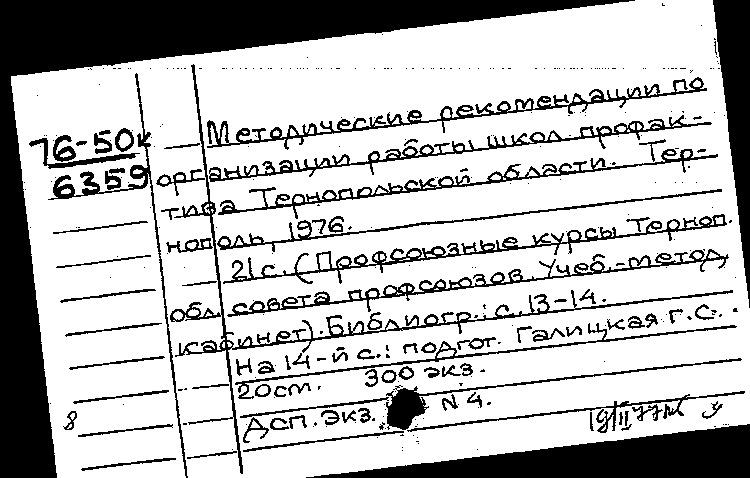 76-50к
6359
Методические рекомендации по
организации работы школ профак-
тива Тернопольской области. Тер-
нополь, 1976.
21с. (Профсоюзные курсы Терноп.
обл. совета профсоюзов. Учеб.-метод.
кабинет). Библиогр.: с. 13-14.
На 14-й с.: подгот. Галицкая Г.С.
20см. 300 экз.
Дсп. экз. N 4.
8